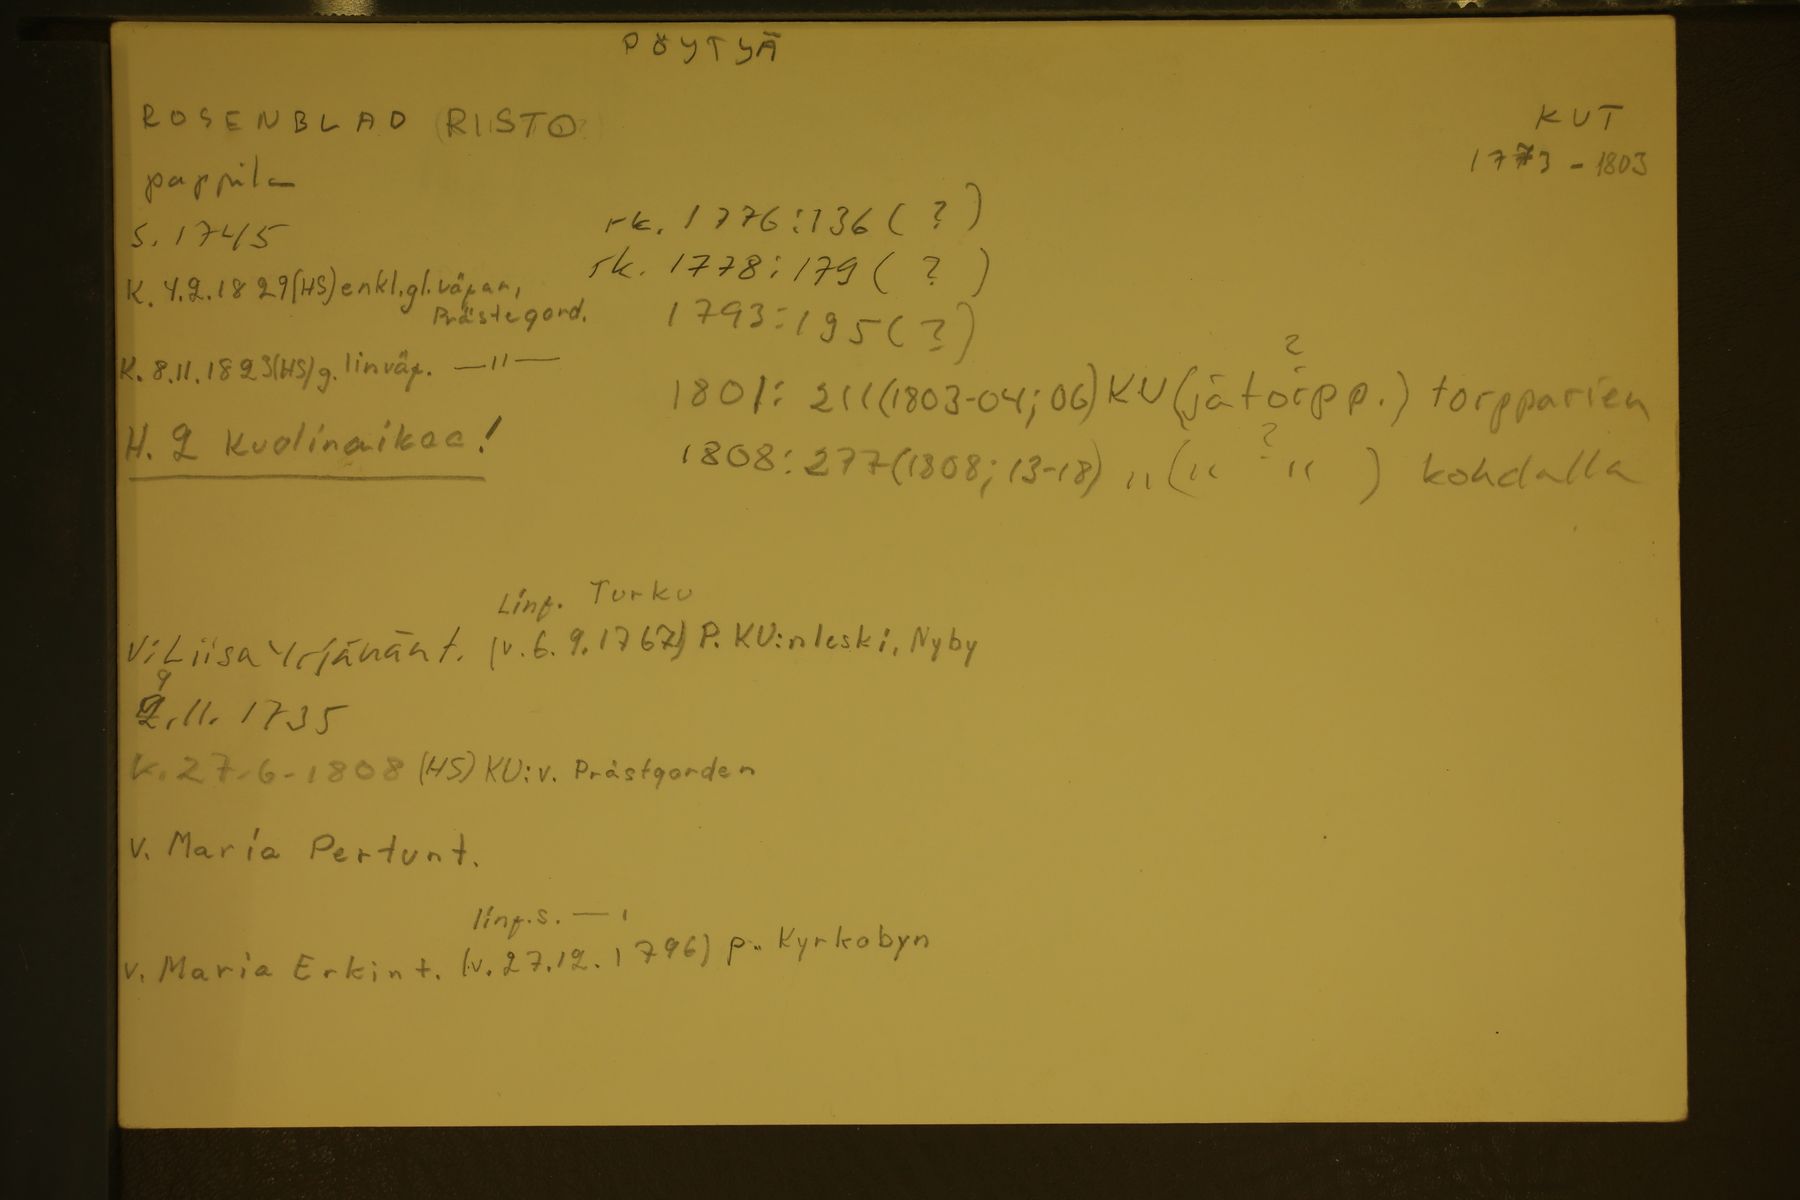 PÖYTYÄ
ROSENBLAD (RIISTO?)
KUT
1773 - 1803
pappila
s. 1745
rk. 1776:136 ( ? )
rk. 1778:179 ( ? )
K. 4.2.1829(HS) enkl.gl.väpar,
Prästegord.
1793:195 ( ? )
K. 8.11.1823(HS) g. linväp. —"—
?
1801: 211(1803-04; 06) KU (jätorpp.) torpparien
H. 2 kuolinaikaa!
?
1808: 277(1808; 13-18) " (" ") kohdalla
Linf. Turku
V: Liisa Yrjänänt. (v. 6.9.1767) P. KU:n leski, Nyby
9
2.11. 1735
k. 27-6-1808 (HS) KU:v. Prästgorden
v. Maria Pertunt.
linf.s. —
v. Maria Erkint. (v. 27.12.1796) p. Kyrkobyn